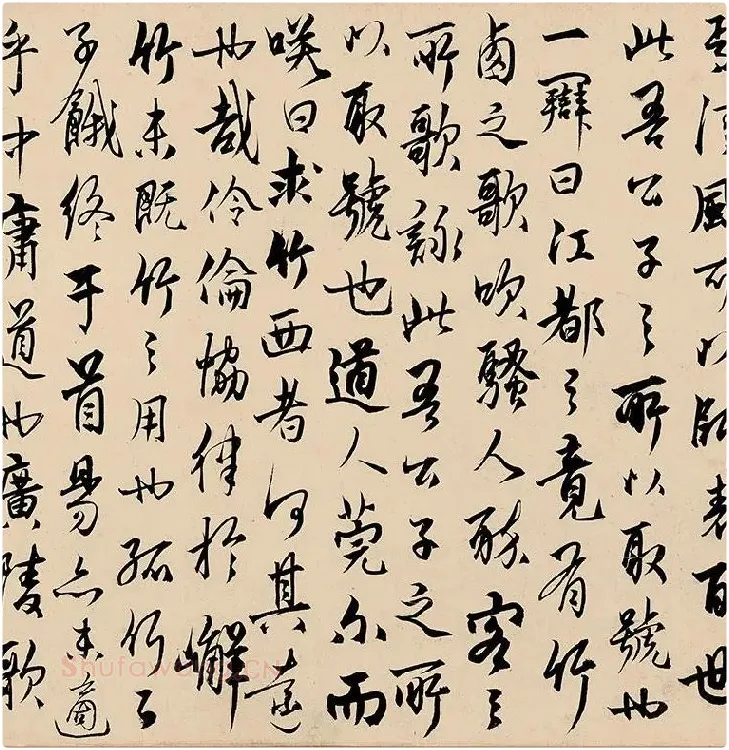 風可以師表百世
此吾公子之所以取號也
一辯曰江都之竟有竹
鹵之歌吹騷人酔客之
所歌詠此吾公子之所
以取號也道人莞尔而
咲曰求竹西者何其遠
也哉伶倫協律於嶰
竹未既竹之用也孤竹之
子餓終于首昜亦未適
乎中庸道也廣陵歌